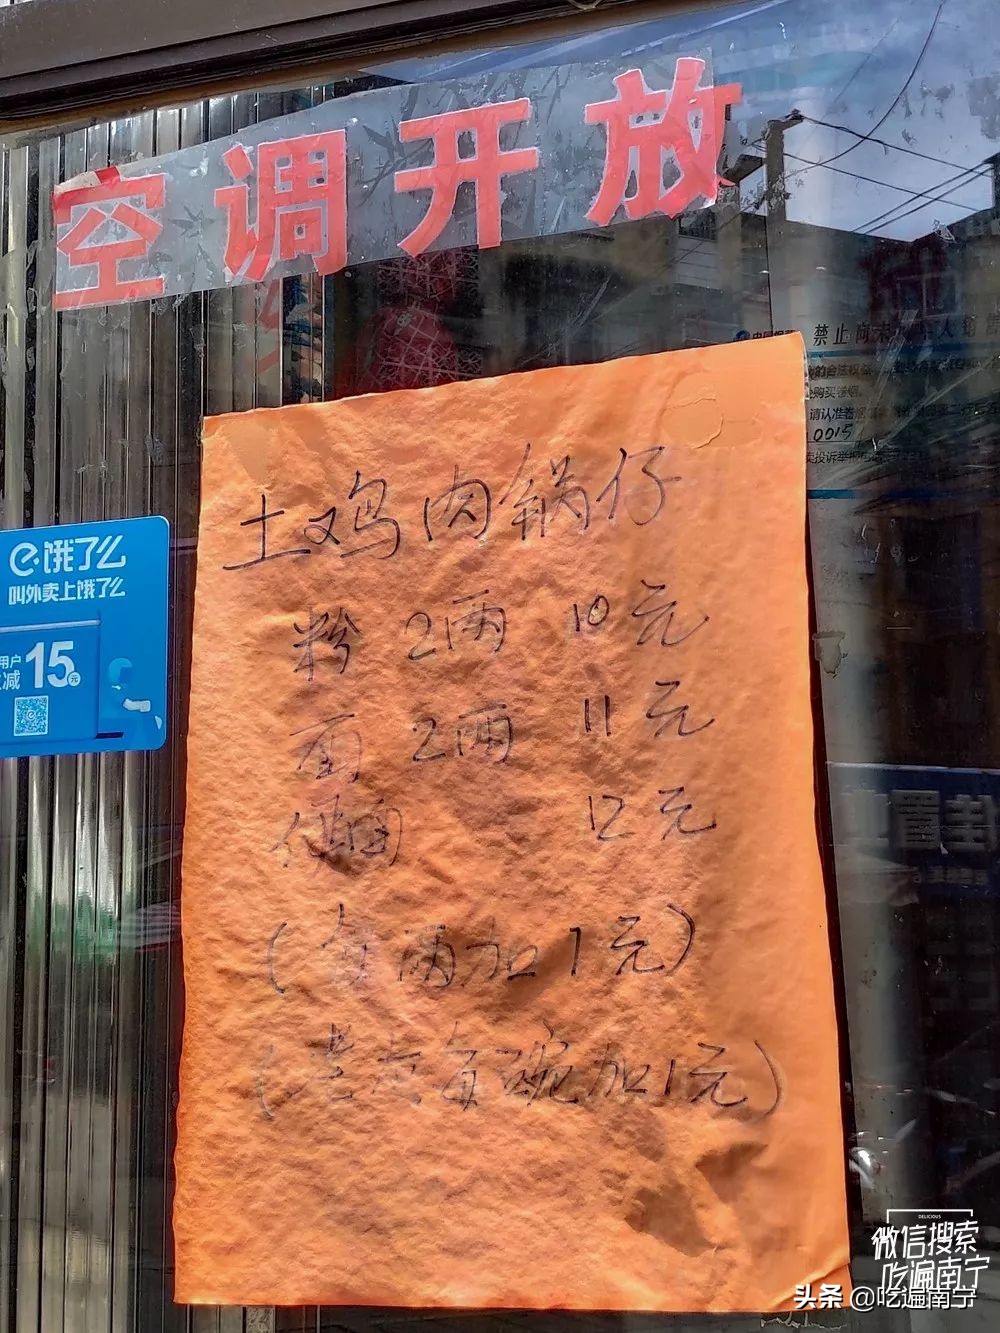 空调开放
禁止尚未
0015
e·饿了么
叫外卖上饿了么
用户
减15元
土鸡肉锅仔
粉 2两 10元
面 2两 11元
12元
(每两加1元)
每碗加1元)
置
DELICIOUS
微信搜索
吃遍南宁
头条 @吃遍南宁